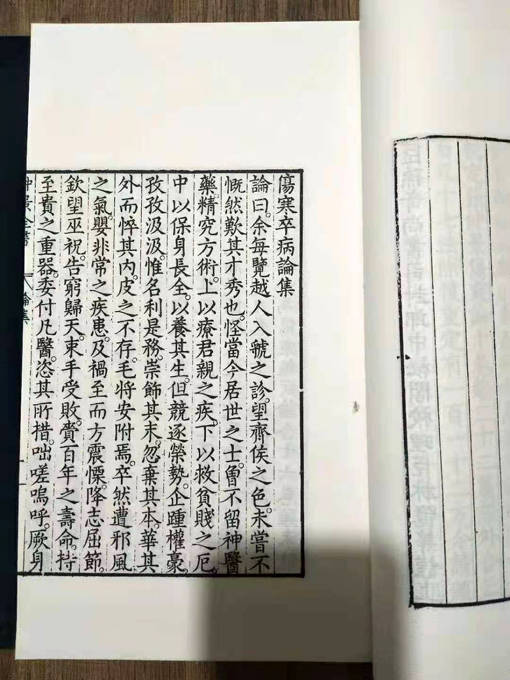 傷寒卒病論集
論曰。余每覽越人入虢之診。望齊侯之色。未嘗不
慨然歎其才秀也。怪當今居世之士。曾不留神醫
藥。精究方術。上以療君親之疾。下以救貧賤之厄。
中以保身長全。以養其生。但競逐榮勢。企踵權豪。
孜孜汲汲。惟名利是務。崇飾其末。忽棄其本。華其
外而悴其內。皮之不存。毛將安附焉。卒然遭邪風
之氣。嬰非常之疾。患及禍至而方震慄。降志屈節。
欽望巫祝。告窮歸天。束手受敗。賫百年之壽命。持
至貴之重器。委付凡醫。恣其所措。咄嗟嗚呼。厥身
仲景全書 論集